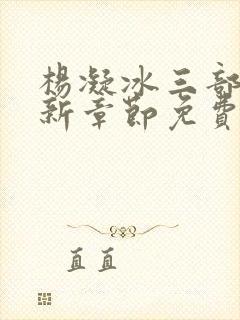 楊凝冰三部
新章節免費
直直